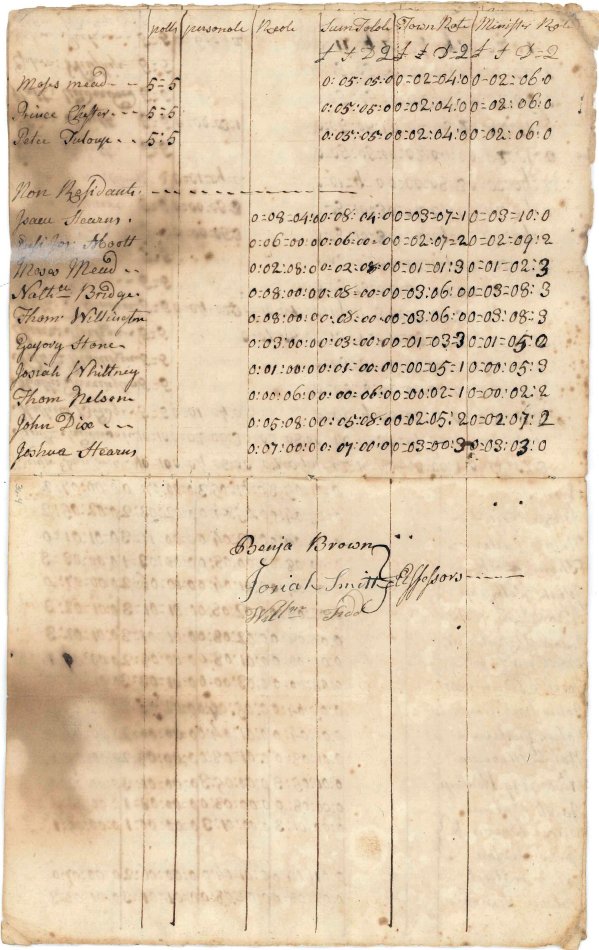 polls personale Reole Sum Totole Town Rate Minister Rate
£ s D Q £ s D Q £ s D Q
Moses mead 5=5 0:05:05:0 0=02=04:0 0=02=06:0
Prince Chester 5=5 0:05:05:0 0=02:04:0 0=02:06:0
Peter 5:5 0:05:05:0 0=02:04:0 0=02:06:0
Non Residants
Isaac Stearns 0:08=04:0 0:08:04:0 0=03=07=1 0=03=10:0
Abbott 0:06=00:0 0:06:00:0 0=02:07=2 0=02=09:2
Moses Mead 0:02:08:0 0:02:08:0 0=01=01:3 0=01=02:3
Nathll Bridge 0:08:00:0 0:08:00:0 0=03:06:0 0=03=08:3
Thom Willington 0:08:00:0 0:08:00:0 0=03:06:0 0=03:08=3
Gregory Stone 0:03:00:0 0:03:00:0 0=01=03=3 0=01=05:0
Josiah Whittney 0:01:00:0 0:01=00:0 0=00=05=1 0=00:05:3
Thom Nelson 0:00:06:0 0:00:06:0 0=00:02=1 0=00:02:2
John Dix 0:05:08:0 0:05:08:0 0=02:05:2 0=02:07:2
Joshua Stearns 0:07:00:0 0:07:00:0 0=03=00:3 0:03:03:0
364
Benja Brown
Josiah Smith Assessors